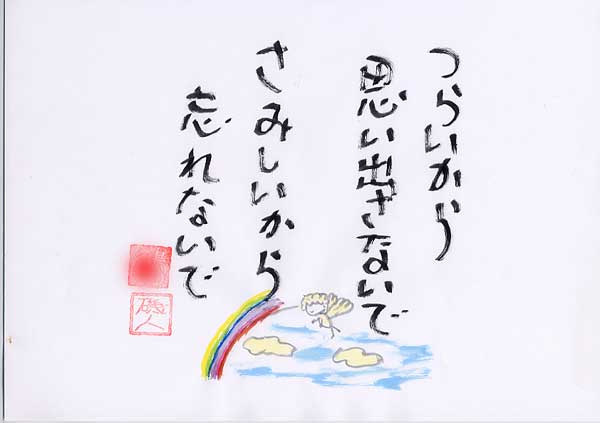 つらいから
思い出さないで
さみしいから
忘れないで
磯人